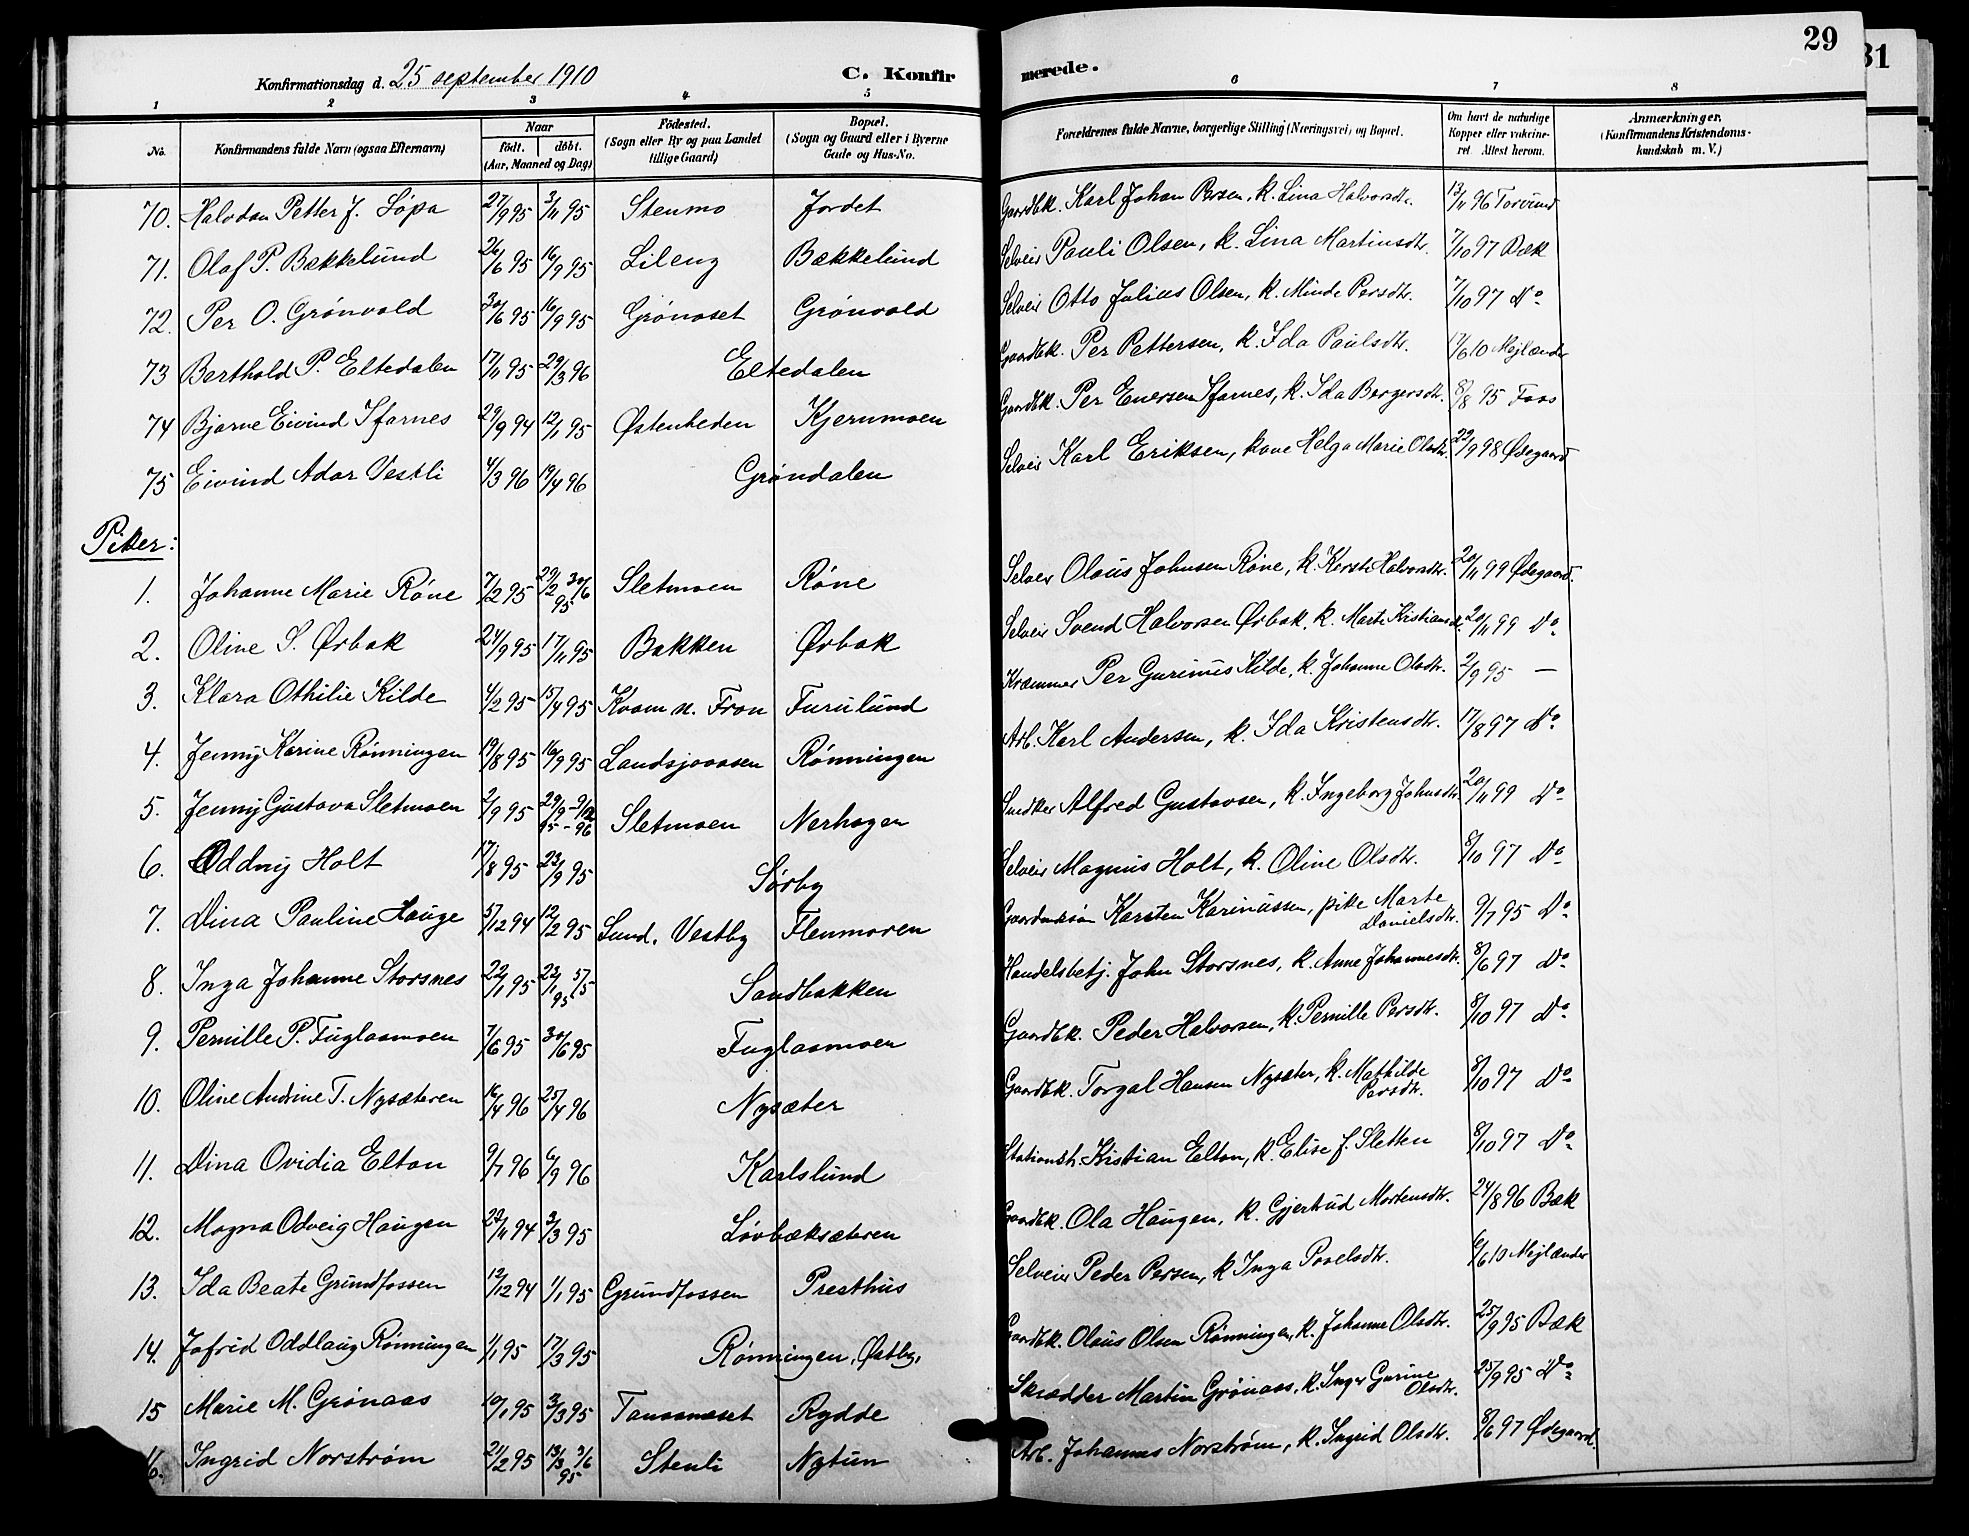 29
31
Konfirmationsdag d. 25 september 1910 C. Konfirmerede.
1 2 3 4 5 6 7 8
No. Konfirmandens fulde Navn (ogsaa Efternavn) Naar født. døbt. (Aar, Maaned og Dag) Fødested. (Sogn eller By og paa Landet tillige Gaard) Bopæl. (Sogn og Gaard eller i Byerne Gade og Hus-No. Forældrenes fulde Navne, borgerlige Stilling (Næringsvei) og Bopæl. Om havt de naturlige Kopper eller vakcineret. Attest herom. Anmærkninger. (Konfirmandens Kristendomskundskab m. V.)
70. Halvdan Petter J. Løpa 27/9 95 3/11 95 Stenmo Jordet Gaardbk. Karl Johan Persen, k. Lina Halvorsdtr. 13/11 96 Torvund
71. Olaf P. Bækkelund 26/6 95 16/9 95 Lileng Bækkelund Selveir Pauli Olsen, k. Lina Martinsdtr. 7/10 97 Bæk
72. Per O. Grønvold 30/6 95 16/9 95 Grønoset Grønvold Selveir Otto Julius Olsen, k. Minde Persdtr. 7/10 97 Do
73 Berthold P. Eltedalen 17/11 95 29/3 96 Eltedalen Gaardbk. Per Pettersen, k. Ida Paulsdtr. 17/6 10 Mejlænder
74 Bjarne Eivind Sfarnes 29/9 94 12/1 95 Østenheden Kjernmoen Gaardbk. Per Enersen Sfarnes, k. Ida Bergersdtr. 8/8 95 Foss
75 Eivind Adar Vestli 4/3 96 19/4 96 Grøndalen Selveir Karl Eriksen, kone Helga Marie Olsdtr. 22/9 98 Ødegaard
Piker:
1. Johanne Marie Røne 7/2 95 29/2 30/6 95 Sletmoen Røne Selveir Olaus Johnsen Røne, k. Kersti Halvorsdtr. 20/11 99 Ødegaard.
2. Oline S. Ørbak 24/9 95 17/11 95 Bakken Ørbak Selveir Svend Halvorsen Ørbak, k. Marte Kristiansd. 20/11 99 Do
3. Klara Othilie Kilde 4/2 95 15/4 95 Kvam n. Fron Furulund Kræmmer Per Gurinius Kilde, k. Johanne Olsdtr. 2/9 95 —
4. Jenny Karine Rønningen 19/8 95 16/9 95 Landsjøaasen Rønningen Arb. Karl Andersen, k. Ida Kristensdtr. 17/8 97 Do
5. Jenny Gustava Sletmoen 2/9 95 29/9 - 9/12 95 - 96 Sletmoen Nerhagen Snedker Alfred Gustavsen, k. Ingeborg Johnsdtr. 20/11 99 Do
6. Oddny Holt 17/8 95 23/9 95 Sørby Selveir Magnus Holt, k. Oline Olsdtr. 8/10 97 Do
7. Dina Pauline Hauge 5/12 94 12/2 95 Sund, Vestby Flenmoen Gaardmandssøn Karsten Karinussen, pike Marte Danielsdtr. 9/7 95 Do
8. Inga Johanne Storsnes 22/1 95 23/1 5/5 95 Sandbakken Handelsbetj. John Storsnes, k. Anne Johannesdtr. 8/6 97 Do
9. Pernille P. Fuglaasmoen 7/6 95 30/6 95 Fuglaasmoen Gaardbk. Peder Halvorsen, k. Pernille Persdtr. 8/10 97 Do
10. Oline Andrine T. Nysæteren 16/4 96 25/4 96 Nysæter Gaardbk. Torgal Hansen Nysæter, k. Mathilde Persdtr. 8/10 97 Do
11. Dina Ovidia Elton 9/7 96 6/9 96 Karlslund Stationsh. Kristian Elton, k. Elise J. Sletten 8/10 97 Do
12. Magna Odveig Haugen 22/11 94 3/3 95 Løvbæksæteren Gaardbk. Ola Haugen, k. Gjertrud Mortensdtr. 24/8 96 Bæk
13. Ida Beate Grundfossen 12/12 94 1/1 95 Grundfossen Presthus Selveir Peder Persen, k Inga Povelsdtr. 6/6 10 Mejlænder
14. Jofrid Oddlaug Rønningen 1/1 95 17/3 95 Rønningen, Østby, Gaardbk. Olaus Olsen Rønningen, k. Johanne Olsdtr. 25/9 95 Bæk
15 Marie M. Grønaas 10/1 95 3/3 95 Tanaasneset Rydde Skrædder Martin Grønaas, k. Inger Gurine Olsdtr. 25/9 95 Do
16. Ingrid Norstrøm 21/2 95 13/3 3/6 95 Stenli Nytun Arb. Johannes Norstrøm, k. Ingrid Olsdtr. 8/6 97 Ødegaard.